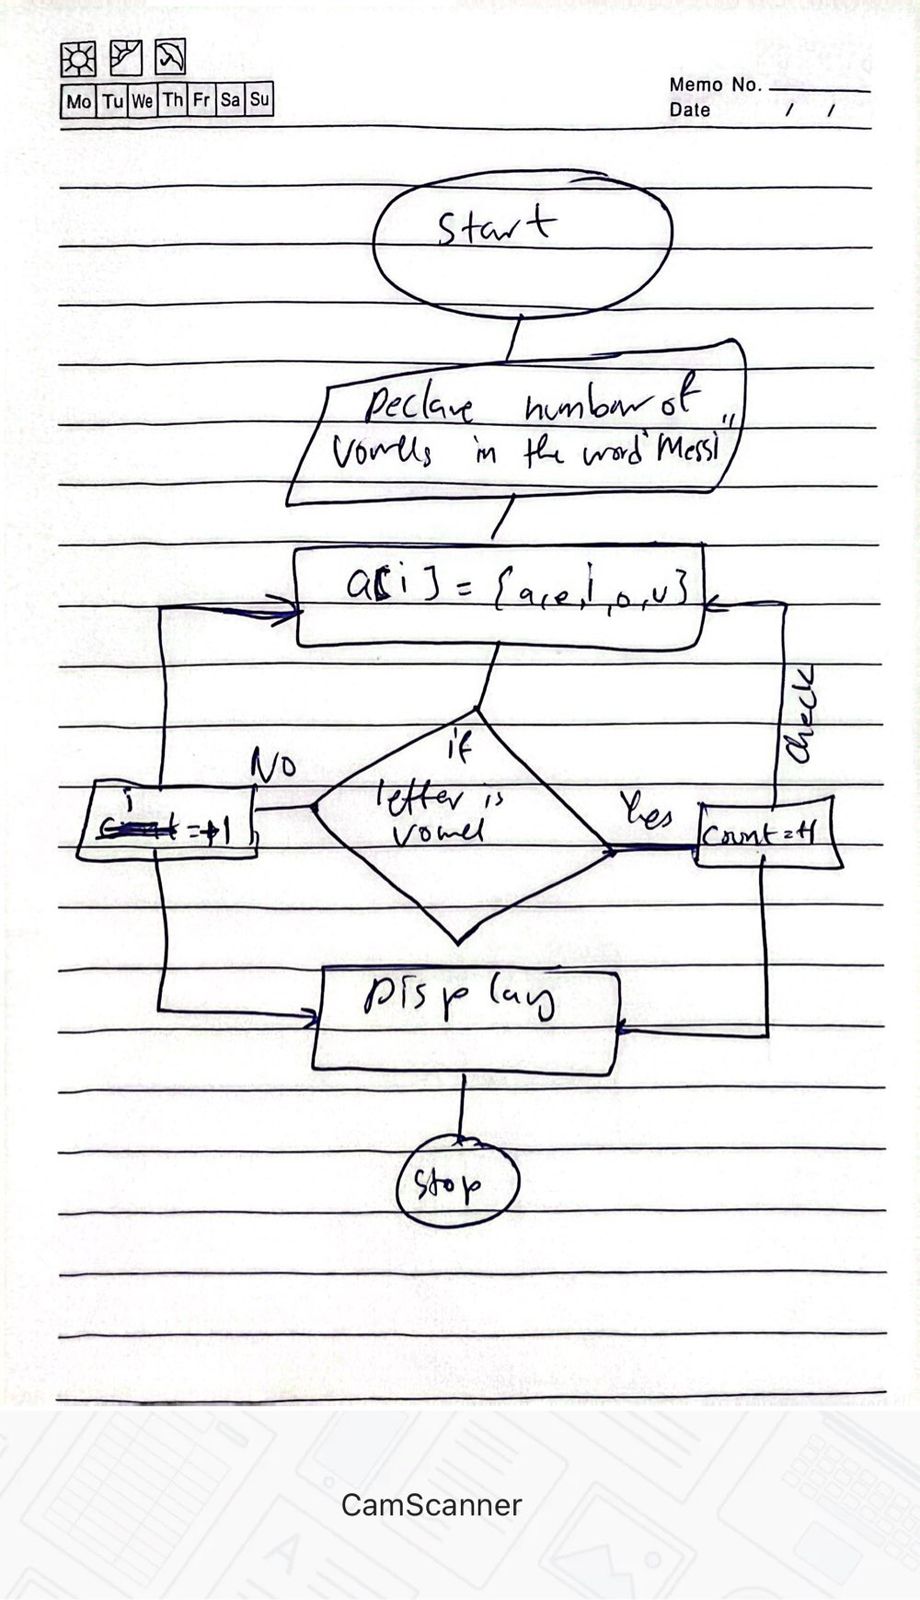 Mo Tu We Th Fr Sa Su
Memo No.
Date / /
Start
Declare number of
vowells in the word "Messi"
a[i] = {a,e,i,o,u}
if
letter is
vowel
No
i
=+1
Yes
count=+1
check
Display
Stop
CamScanner